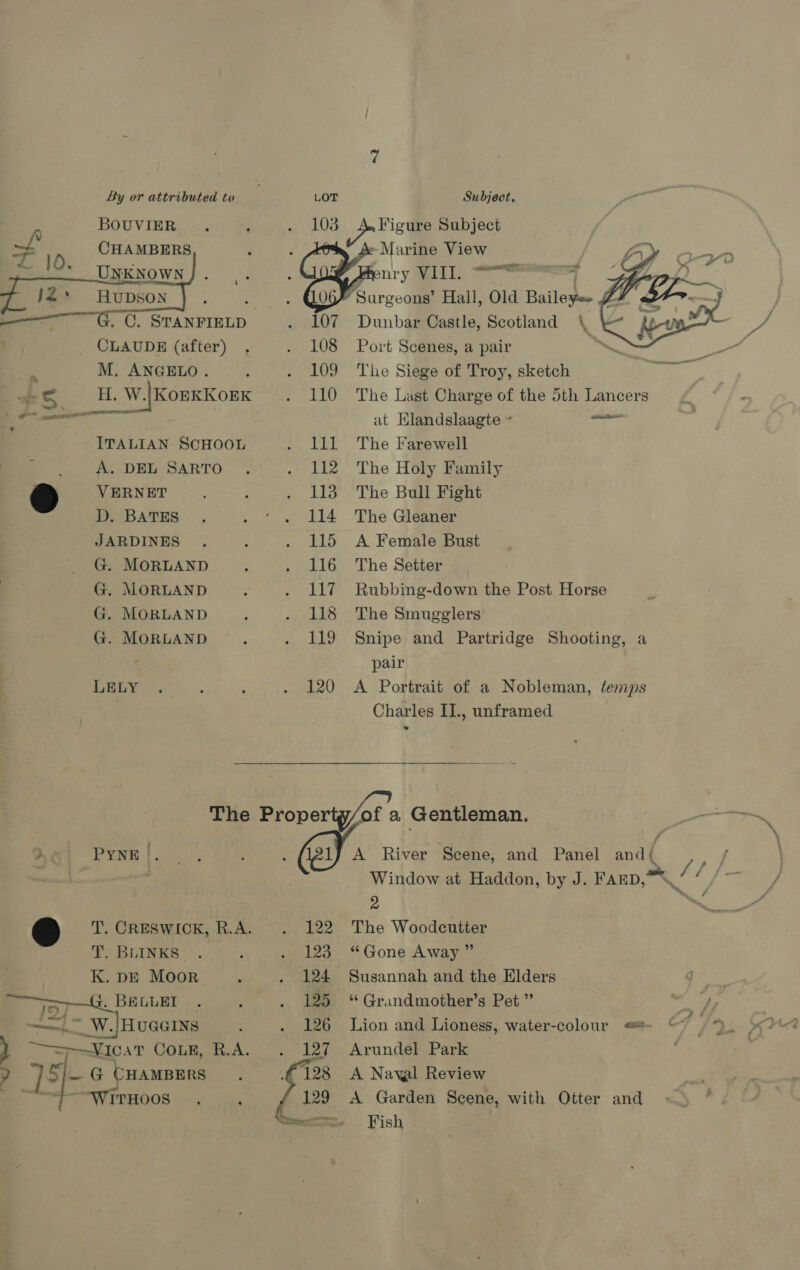 7
By or attributed to LOT Subject.
BOUVIER . . . 103 A Figure Subject
CHAMBERS . . Marine View
10. UNKNOWN . . . 105 Henry VIII.
12. HUDSON . . . 106 Surgeons' Hall, Old Bailey
G. C. STANFIELD . 107 Dunbar Castle, Scotland
CLAUDE (after) . . 108 Port Scenes, a pair
M. ANGELO . . . 109 The Siege of Troy, sketch
H. W. KOEKKOEK . 110 The Last Charge of the 5th Lancers
at Elandslaagte
ITALIAN SCHOOL . 111 The Farewell
A. DEL SARTO . . 112 The Holy Family
VERNET . . . 113 The Bull Fight
D. BATES . . . 114 The Gleaner
JARDINES . . . 115 A Female Bust
G. MORLAND . . 116 The Setter
G. MORLAND . . 117 Rubbing-down the Post Horse
G. MORLAND . . 118 The Smugglers
G. MORLAND . . 119 Snipe and Partridge Shooting, a
pair
LELY . . . . 120 A Portrait of a Nobleman, temps
Charles II., unframed
The Property of a Gentleman.
PYNE . . . . 121 A River Scene, and Panel and
Window at Haddon, by J. FAED,
2
T. CRESWICK, R.A. . 122 The Woodcutter
T. BLINKS . . . 123 "Gone Away"
K. DE MOOR . . 124 Susannah and the Elders
G. BELLEI . . . 125 "Grandmother's Pet"
W. HUGGINS . . 126 Lion and Lioness, water-colour
VICAT COLE, R.A. . 127 Arundel Park
G CHAMBERS . . 128 A Naval Review
WITHOOS . . . 129 A Garden Scene, with Otter and
Fish